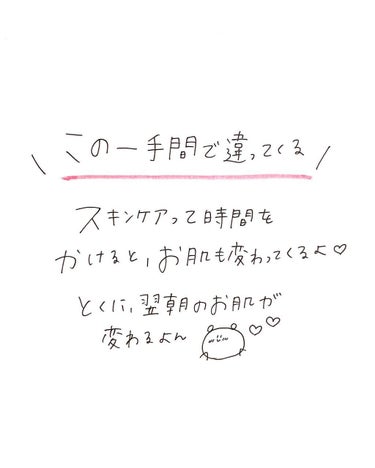 \ この一手間で違ってくる /
スキンケアって時間を
かけると、お肌も変わってくるよ♡
とくに、翌朝のお肌が
変わるよん ♡♡